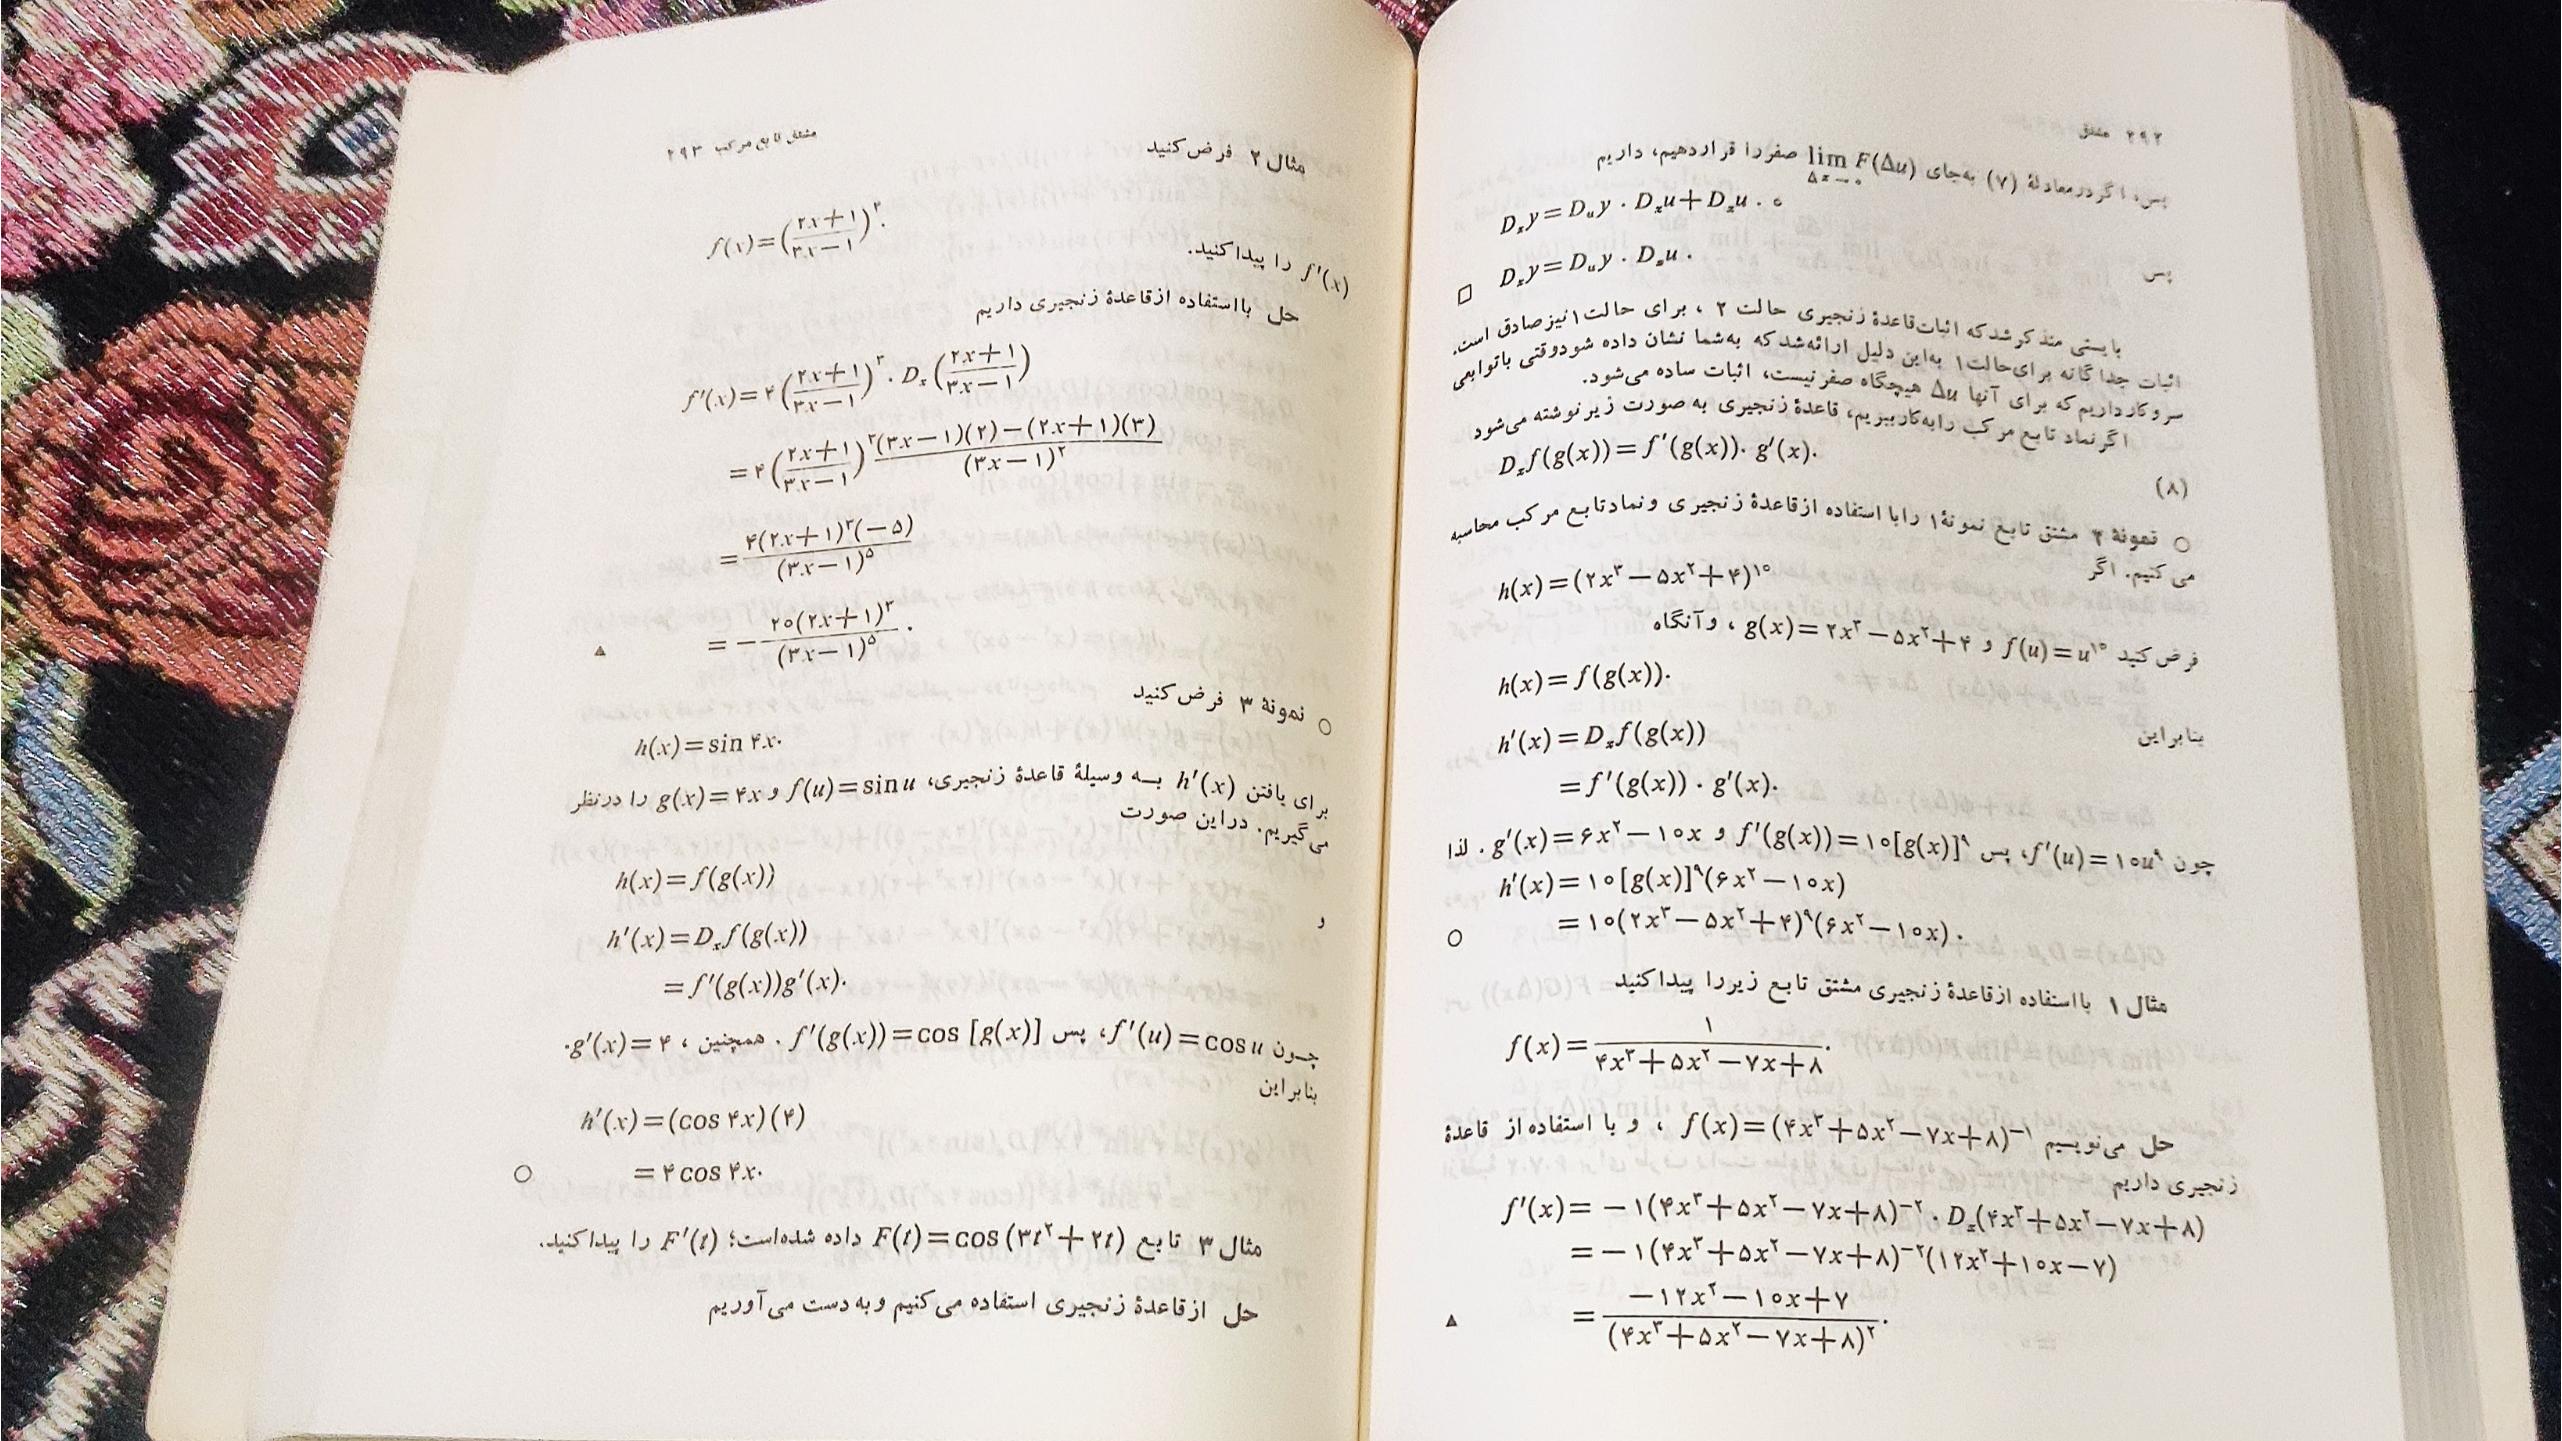 ۲۹۲ مشتق
پس، اگر در معادلهٔ (۷) به‌جای lim F(Δu) صفر را قرار دهیم، داریم
Δx→۰
Dₓy=Dᵤy · Dₓu+Dₓu · ۰
پس
Dₓy=Dᵤy · Dₓu.
□
بایستی متذکر شد که اثبات قاعدهٔ زنجیری حالت ۲، برای حالت ۱ نیز صادق است.
اثبات جداگانه برای حالت ۱ به‌این دلیل ارائه شد که به‌شما نشان داده شود وقتی با توابعی
سر و کار داریم که برای آنها Δu هیچگاه صفر نیست، اثبات ساده می‌شود.
اگر نماد تابع مرکب را به‌کار ببریم، قاعدهٔ زنجیری به صورت زیر نوشته می‌شود
Dₓf(g(x))=f′(g(x))· g′(x).
(۸)
○ نمونهٔ ۲ مشتق تابع نمونهٔ ۱ را با استفاده از قاعدهٔ زنجیری و نماد تابع مرکب محاسبه
می‌کنیم. اگر
h(x)=(۲x³−۵x²+۴)¹⁰
فرض کنید f(u)=u¹⁰ و g(x)=۲x³−۵x²+۴، و آنگاه
h(x)=f(g(x)).
بنابراین
h′(x)=Dₓf(g(x))
=f′(g(x)) · g′(x).
چون f′(u)=۱۰u⁹، پس f′(g(x))=۱۰[g(x)]⁹ و g′(x)=۶x²−۱۰x. لذا
h′(x)=۱۰[g(x)]⁹(۶x²−۱۰x)
=۱۰(۲x³−۵x²+۴)⁹(۶x²−۱۰x). ○
مثال ۱ با استفاده از قاعدهٔ زنجیری مشتق تابع زیر را پیدا کنید
f(x)=۱/(۴x³+۵x²−۷x+۸).
حل می‌نویسیم f(x)=(۴x³+۵x²−۷x+۸)⁻¹، و با استفاده از قاعدهٔ
زنجیری داریم
f′(x)=−۱(۴x³+۵x²−۷x+۸)⁻² · Dₓ(۴x³+۵x²−۷x+۸)
=−۱(۴x³+۵x²−۷x+۸)⁻²(۱۲x²+۱۰x−۷)
=(−۱۲x²−۱۰x+۷)/(۴x³+۵x²−۷x+۸)². ▲
مشتق تابع مرکب ۲۹۳
مثال ۲ فرض کنید
f(x)=((۲x+۱)/(۳x−۱))⁴.
f′(x) را پیدا کنید.
حل با استفاده از قاعدهٔ زنجیری داریم
f′(x)=۴((۲x+۱)/(۳x−۱))³ · Dₓ((۲x+۱)/(۳x−۱))
=۴((۲x+۱)/(۳x−۱))³ ((۳x−۱)(۲)−(۲x+۱)(۳))/(۳x−۱)²
=۴(۲x+۱)³(−۵)/(۳x−۱)⁵
=−۲۰(۲x+۱)³/(۳x−۱)⁵. ▲
○ نمونهٔ ۳ فرض کنید
h(x)=sin ۴x.
برای یافتن h′(x) به وسیلهٔ قاعدهٔ زنجیری، f(u)=sin u و g(x)=۴x را در نظر
می‌گیریم. در این صورت
h(x)=f(g(x))
و
h′(x)=Dₓf(g(x))
=f′(g(x))g′(x).
چون f′(u)=cos u، پس f′(g(x))=cos [g(x)]. همچنین، g′(x)=۴.
بنابراین
h′(x)=(cos ۴x)(۴)
=۴ cos ۴x. ○
مثال ۳ تابع F(t)=cos (۳t²+۲t) داده شده‌است؛ F′(t) را پیدا کنید.
حل از قاعدهٔ زنجیری استفاده می‌کنیم و به دست می‌آوریم